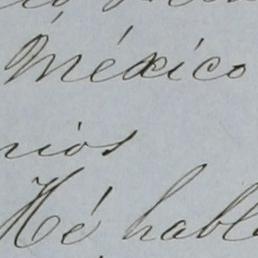 México
nios
Hé habl